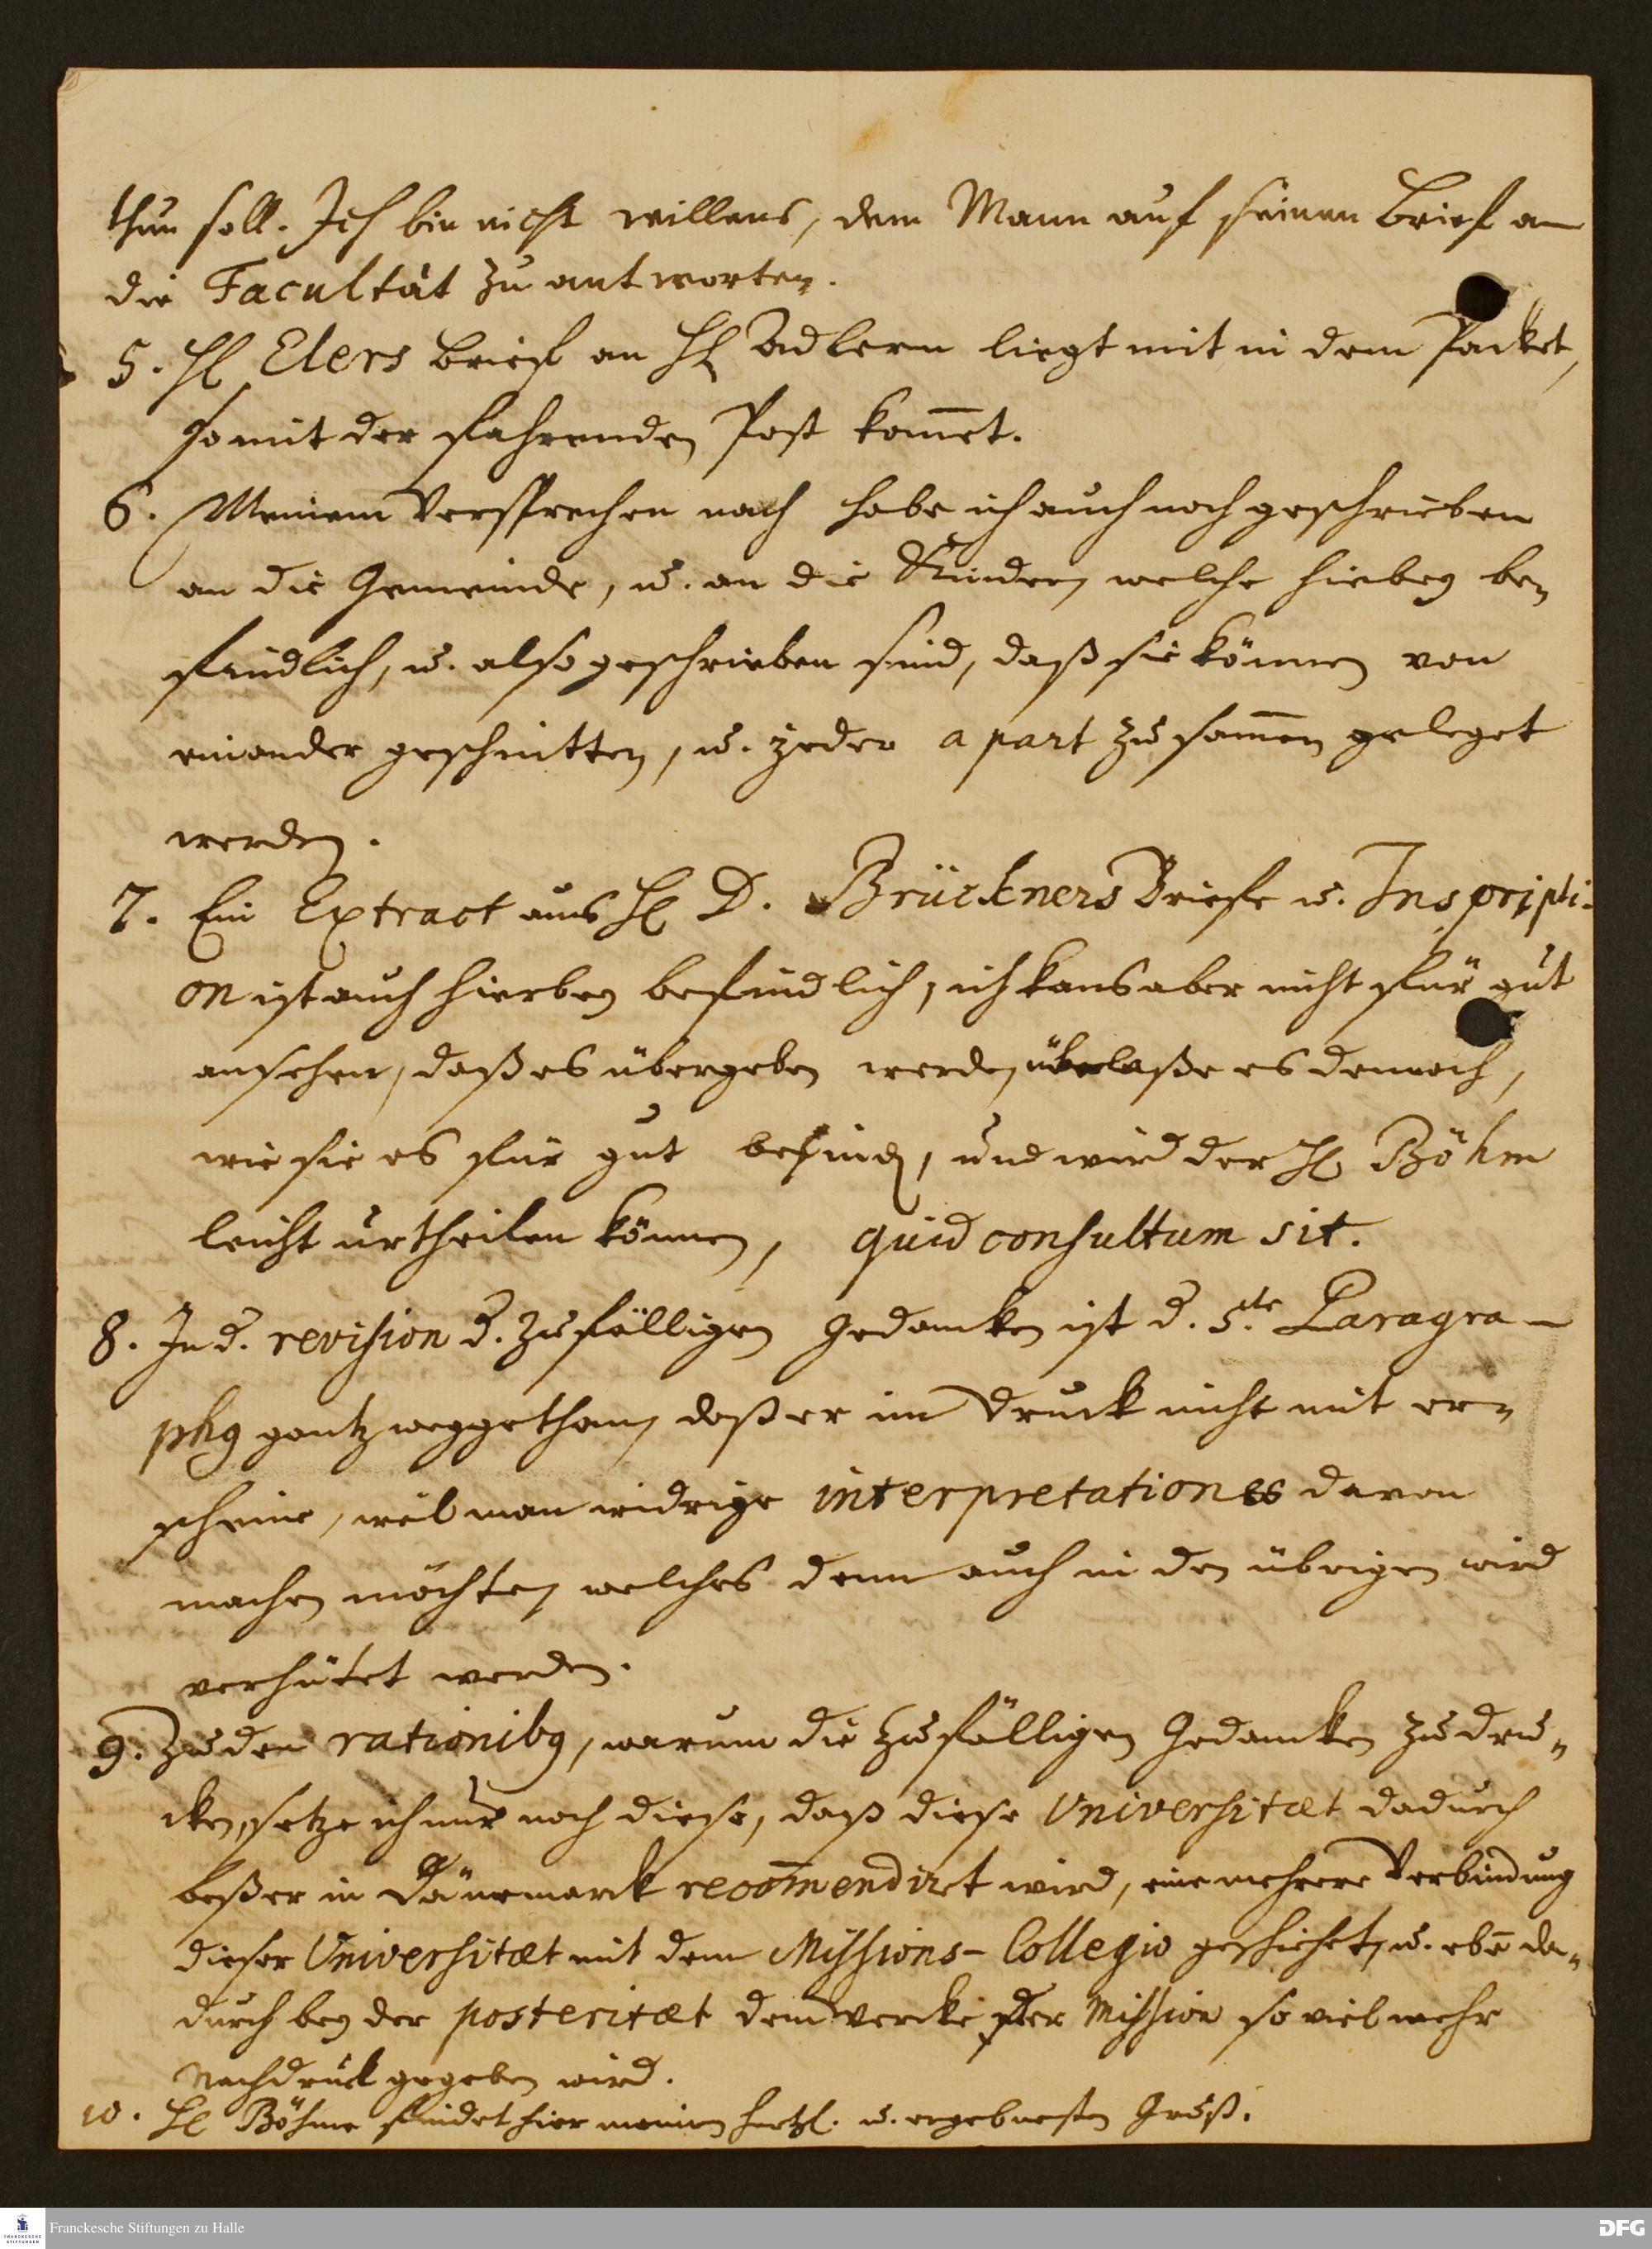 thun soll. Ich bin nicht willens, dem Mann auf seinen Brief an
die Facultät zu antworten.
5. H Elers Brief an H Adlern liegt mit in dem Packet,
so mit der fahrenden Post kom̄et.
6. Meinem Versprechen nach habe ich auch noch geschrieben
an die Gemeinde, u. an die Kinder, welche hiebey be-
findlich, u. also geschrieben sind, daß sie können von
einander geschnitten, u. jeder a part zusam̄en geleget
werden.
7. Ein Extract aus H D. Brückners Briefe u. Inscripti-
on ist auch hierbey befindlich, ich kans aber nicht für gut
ansehen, daß es übergeben werde, überlaße es dennoch,
wie sie es für gut befinden, und wird der H Böhm
leicht urtheilen können, quid consultum sit.
8. In d. revision d. zufälligen Gedancken ist d. 5.te Paragra-
phg gantz weggethan, daß er im Druck nicht mit er-
scheine, weil man widrige interpretationes davon
machen möchte, welches denn auch in den übrigen wird
verhütet werden.
9. Zu den rationibg, warum die zufälligen Gedancken zu dru-
cken, setze ich nur noch diese, daß diese Universitæt dadurch
beßer in Dänemarck recom̄endiret wird, eine mehrere Verbindung
dieser Universitæt mit dem Missions-Collegio geschiehet, u. ebē da-
durch bey der posteritæt dem Wercke der Mission so viel mehr
Nachdruck gegeben wird.
10. H Böhme findet hier meinen hertzl. u. ergebnesten Gruß.
Franckesche Stiftungen zu Halle
FRANCKESCHE STIFTUNGEN
DFG